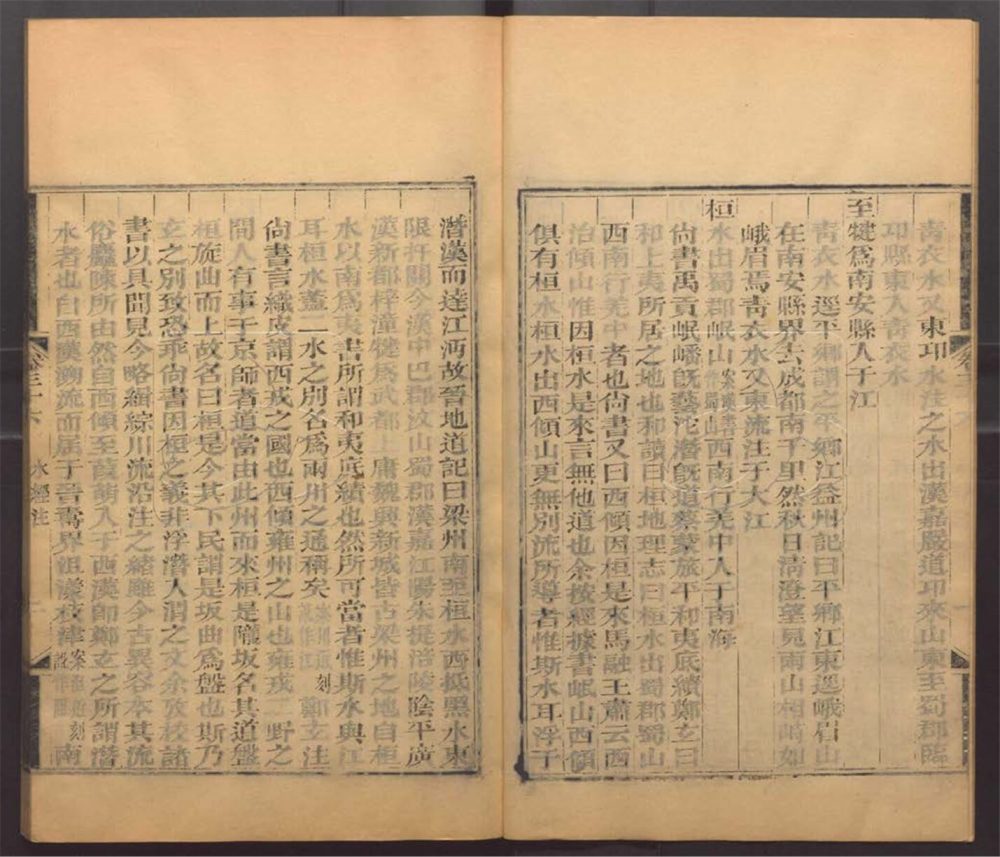 青衣水又東卭水注之水出漢嘉嚴道卭來山東至蜀郡臨
卭縣東入青衣水
至犍爲南安縣入于江
青衣水逕平鄉謂之平鄉江益州記曰平鄉江東逕峨眉山
在南安縣界去成都南千里然秋日清澄望見兩山相峙如
峨眉焉青衣水又東流注于大江
桓水出蜀郡岷山案漢書作蜀山西南行羌中入于南海
尚書禹貢岷嶓旣藝沱潛旣道蔡蒙旅平和夷底績鄭玄曰
和上夷所居之地也和讀曰桓地理志曰桓水出蜀郡蜀山
西南行羌中者也尚書又曰西傾因桓是來馬融王肅云西
治傾山惟因桓水是來言無他道也余按經據書岷山西傾
俱有桓水桓水出西傾山更無別流所導者惟斯水耳浮于
潛漢而達江沔故晉地道記曰梁州南至桓水西抵黑水東
限扞關今漢中巴郡汶山蜀郡漢嘉江陽朱提涪陵陰平廣
漢新都梓潼犍爲武都上庸魏興新城皆古梁州之地自桓
水以南爲夷書所謂和夷底績也然所可當者惟斯水與江
耳桓水蓋二水之別名爲兩川之通稱矣鄭玄注
尚書言織皮謂西戎之國也西傾雍州之山也雍戎二野之
間人有事于京師者道當由此州而來桓是隴坂名其道盤
桓旋曲而上故名曰桓是今其下民謂是坂曲爲盤也斯乃
玄之別致恐乖尚書因桓之義非浮潛入渭之文余攷校諸
書以具聞見今略緝綜川流沿注之緒雖今古異容本其流
俗麤陳所由然自西傾至葭萌入于西漢卽鄭玄之所謂潛
水者也自西漢溯流而屆于晉壽界沮漾枝津南
卷三十六 水經注